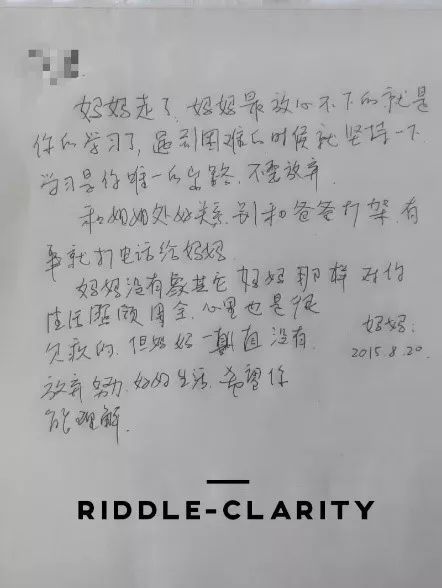 妈妈走了，妈妈最放心不下的就是
你的学习了，遇到困难的时候就坚持一下
学习是你唯一的出路，不要放弃.
和姐姐处好关系，别和爸爸打架，有
事就打电话给妈妈
妈妈没有象其它妈妈那样对你
生活照顾周全，心里也是很
欠疚的，但妈妈一期直没有
放弃努力，好好生活，希望你
能理解.
妈妈:
2015.8.20.
RIDDLE-CLARITY